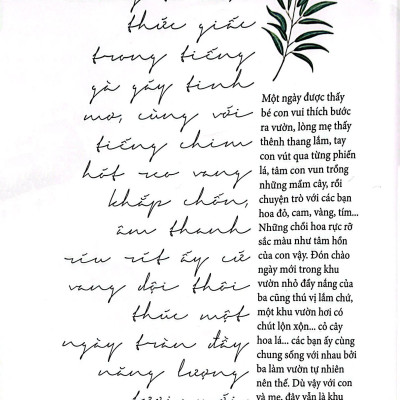 thức giấc
trong tiếng
gà gáy tinh
mơ, cùng với
tiếng chim
hót reo vang
khắp chốn,
âm thanh
ríu rít ấy cứ
vang dội thôi
thúc một
ngày tràn đầy
năng lượng
Một ngày được thấy
bé con vui thích bước
ra vườn, lòng mẹ thấy
thênh thang lắm, tay
con vút qua từng phiến
lá, tâm con vun trồng
những mầm cây, rồi
chuyện trò với các bạn
hoa đỏ, cam, vàng, tím...
Những chồi hoa rực rỡ
sắc màu như tâm hồn
của con vậy. Đón chào
ngày mới trong khu
vườn nhỏ đầy nắng của
ba cũng thú vị lắm chứ,
một khu vườn hơi có
chút lộn xộn... cỏ cây
hoa lá... các bạn ấy cùng
chung sống với nhau bởi
ba làm vườn tự nhiên
nên thế. Dù vậy với con
và mẹ, đây vẫn là khu